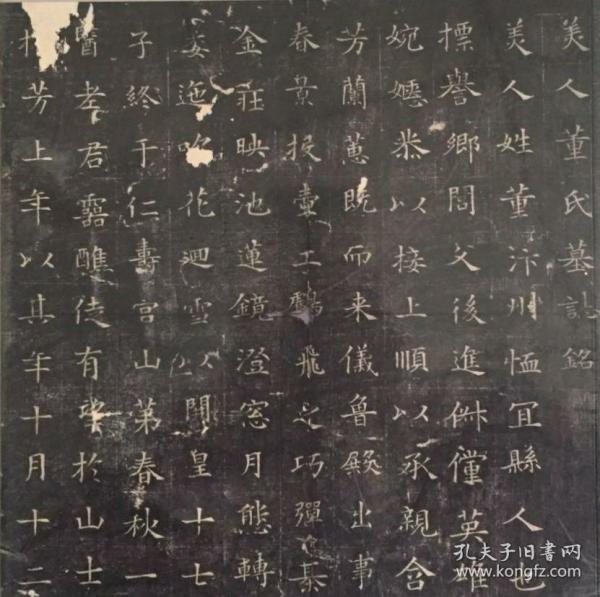 美人董氏墓誌銘
美人姓董汴州恤冝縣人也
摽譽鄉閭父後進俶儻英雄
婉嫕恭以接上順以承親含
芳蘭蕙既而来儀魯殿出事
春景投壺工鶴飛之巧彈棊
金莊映池蓮鏡澄窓月態轉
委迤吹花迴雪以開皇十七
子終于仁壽宮山第春秋一
醫老君靈醮徒有望於山士
芳上年以其年十月十二
孔夫子旧書网
www.kongfz.com